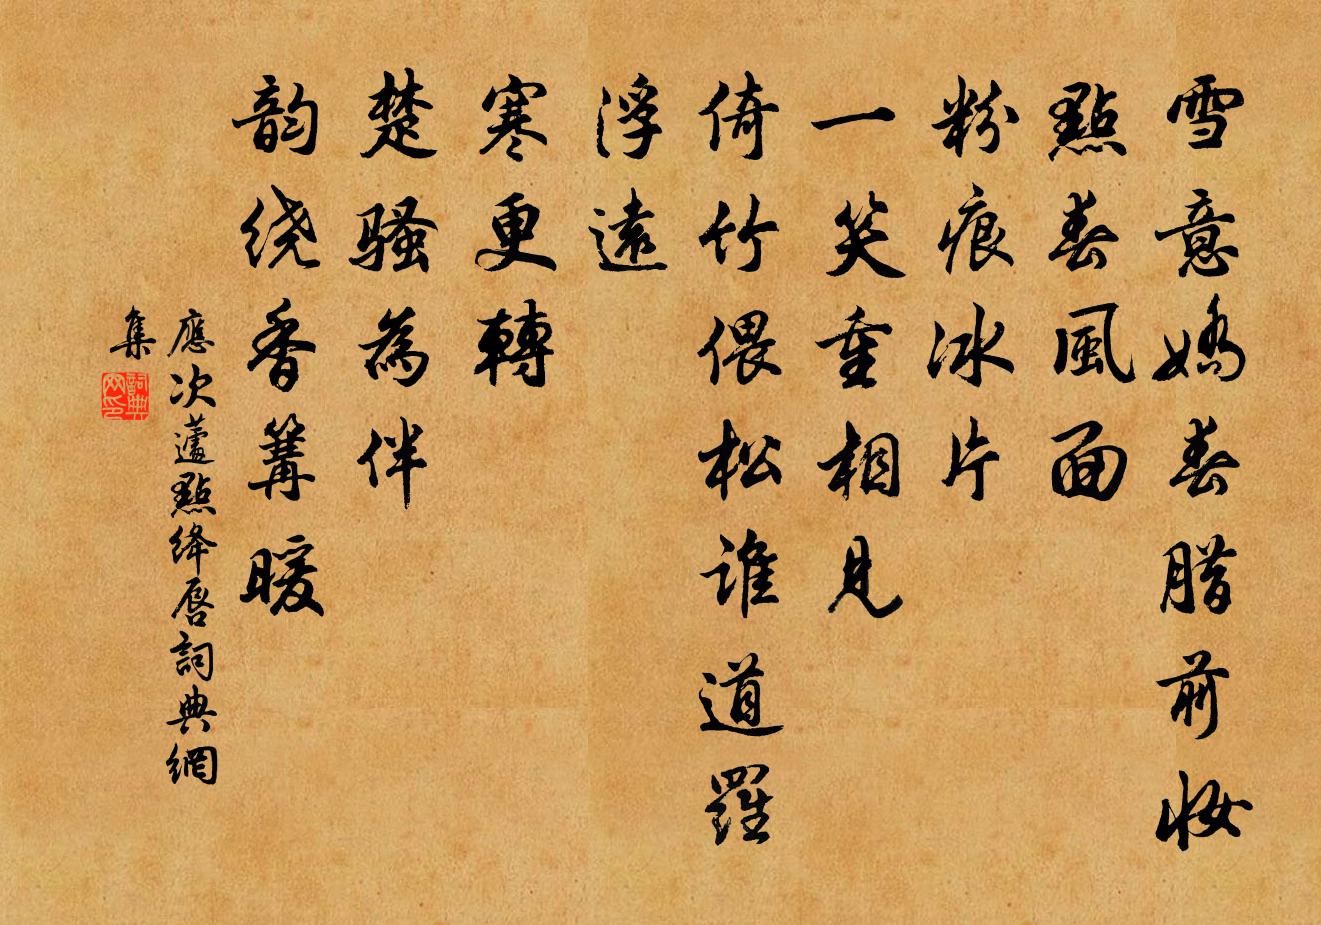 雪意嬌春腊前妆
點春風面
粉痕冰片
一笑重相見
倚竹偎松谁道羅
浮遠
寒更轉
楚骚為伴
韵绕香篝暖
應次蘧點绛唇詞典網
集
詞典网印